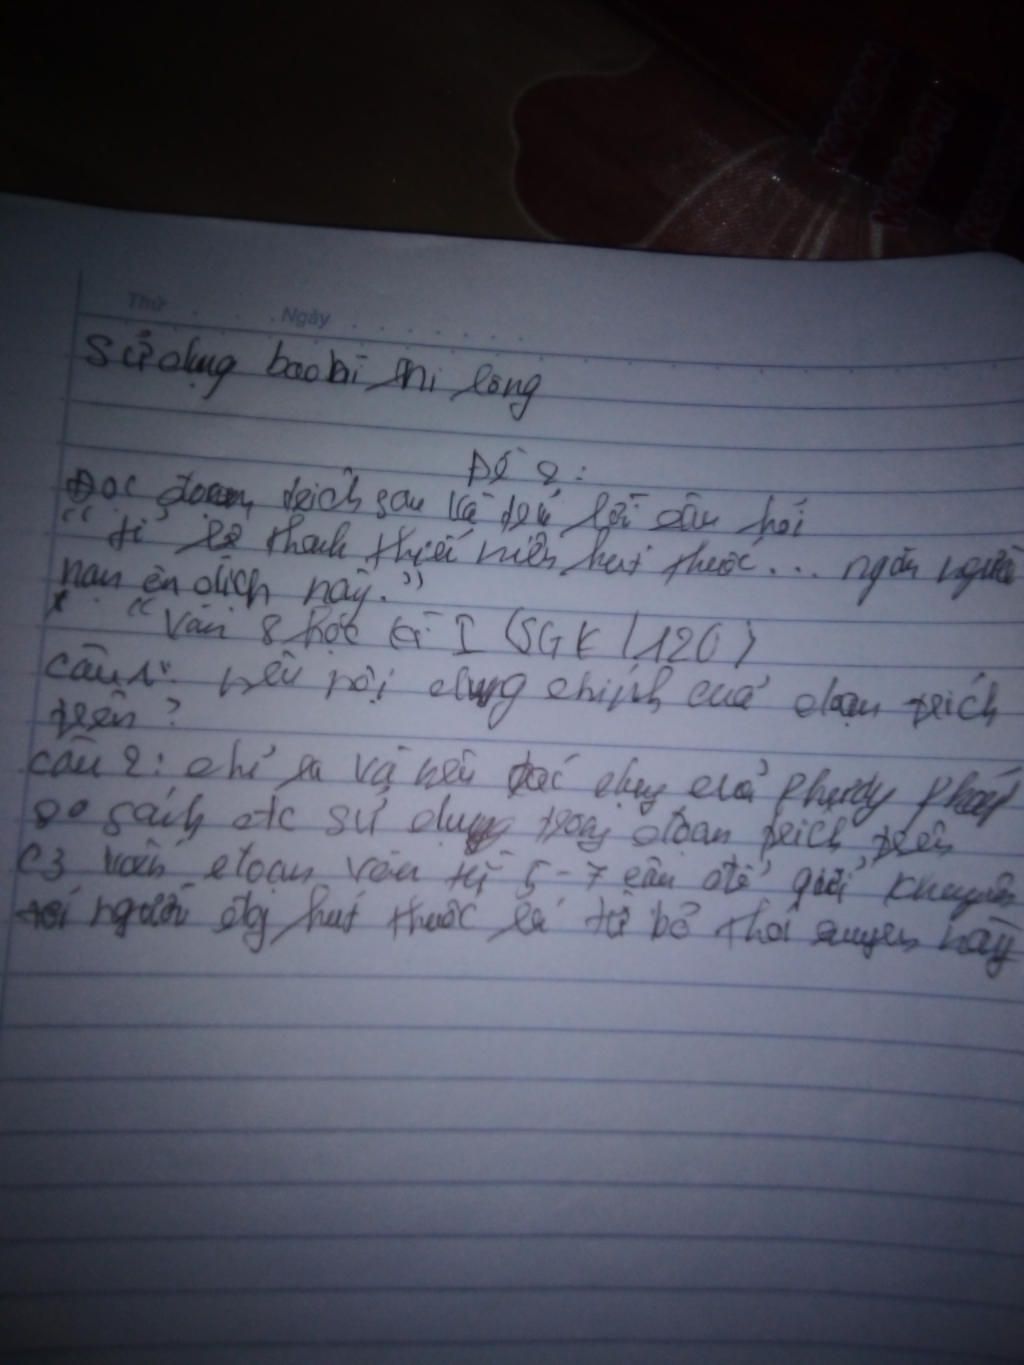 Thứ Ngày
Sử dụng bao bì ni lông
Đề 2:
Đọc đoạn trích sau và trả lời câu hỏi
"tỉ lệ thanh thiếu niên hút thuốc... ngăn ngừa
nạn ôn dịch này."
"Văn 8 học kì I (SGK/120)
Câu 1: nêu nội dung chính của đoạn trích
trên?
Câu 2: chỉ ra và nêu tác dụng của phương pháp
so sánh đc sử dụng trong đoạn trích trên
C3 đoạn văn từ 5-7 câu để gửi khuyên
người đg hút thuốc lá từ bỏ thói quen này